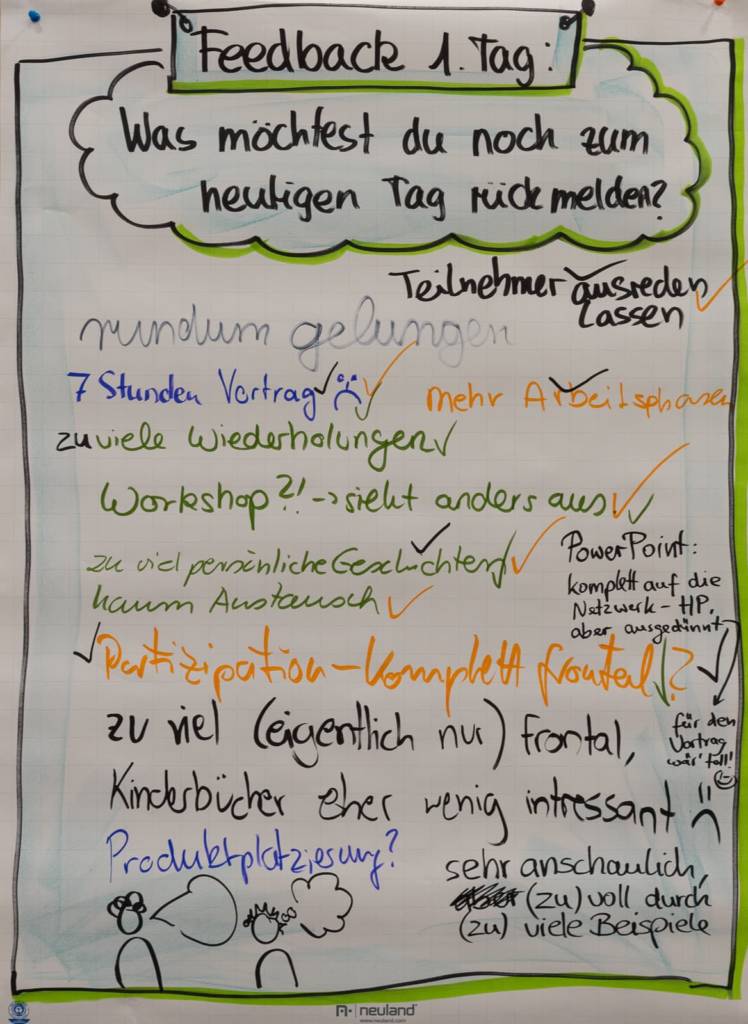 Feedback 1. Tag:
Was möchtest du noch zum
heutigen Tag rückmelden?
Teilnehmer ausreden
lassen
rundum gelungen
7 Stunden Vortrag
mehr Arbeitsphasen
zu viele Wiederholungen
Workshop?! -> sieht anders aus
zu viel persönliche Geschichten
kaum Austausch
PowerPoint:
komplett auf die
Netzwerk-HP,
aber ausgedünnt
für den
Vortrag
wär' toll!
Partizipation - komplett frontal ?
zu viel (eigentlich nur) frontal,
Kinderbücher eher wenig intressant
Produktplatzierung?
sehr anschaulich,
(zu) voll durch
(zu) viele Beispiele
neuland
www.neuland.com